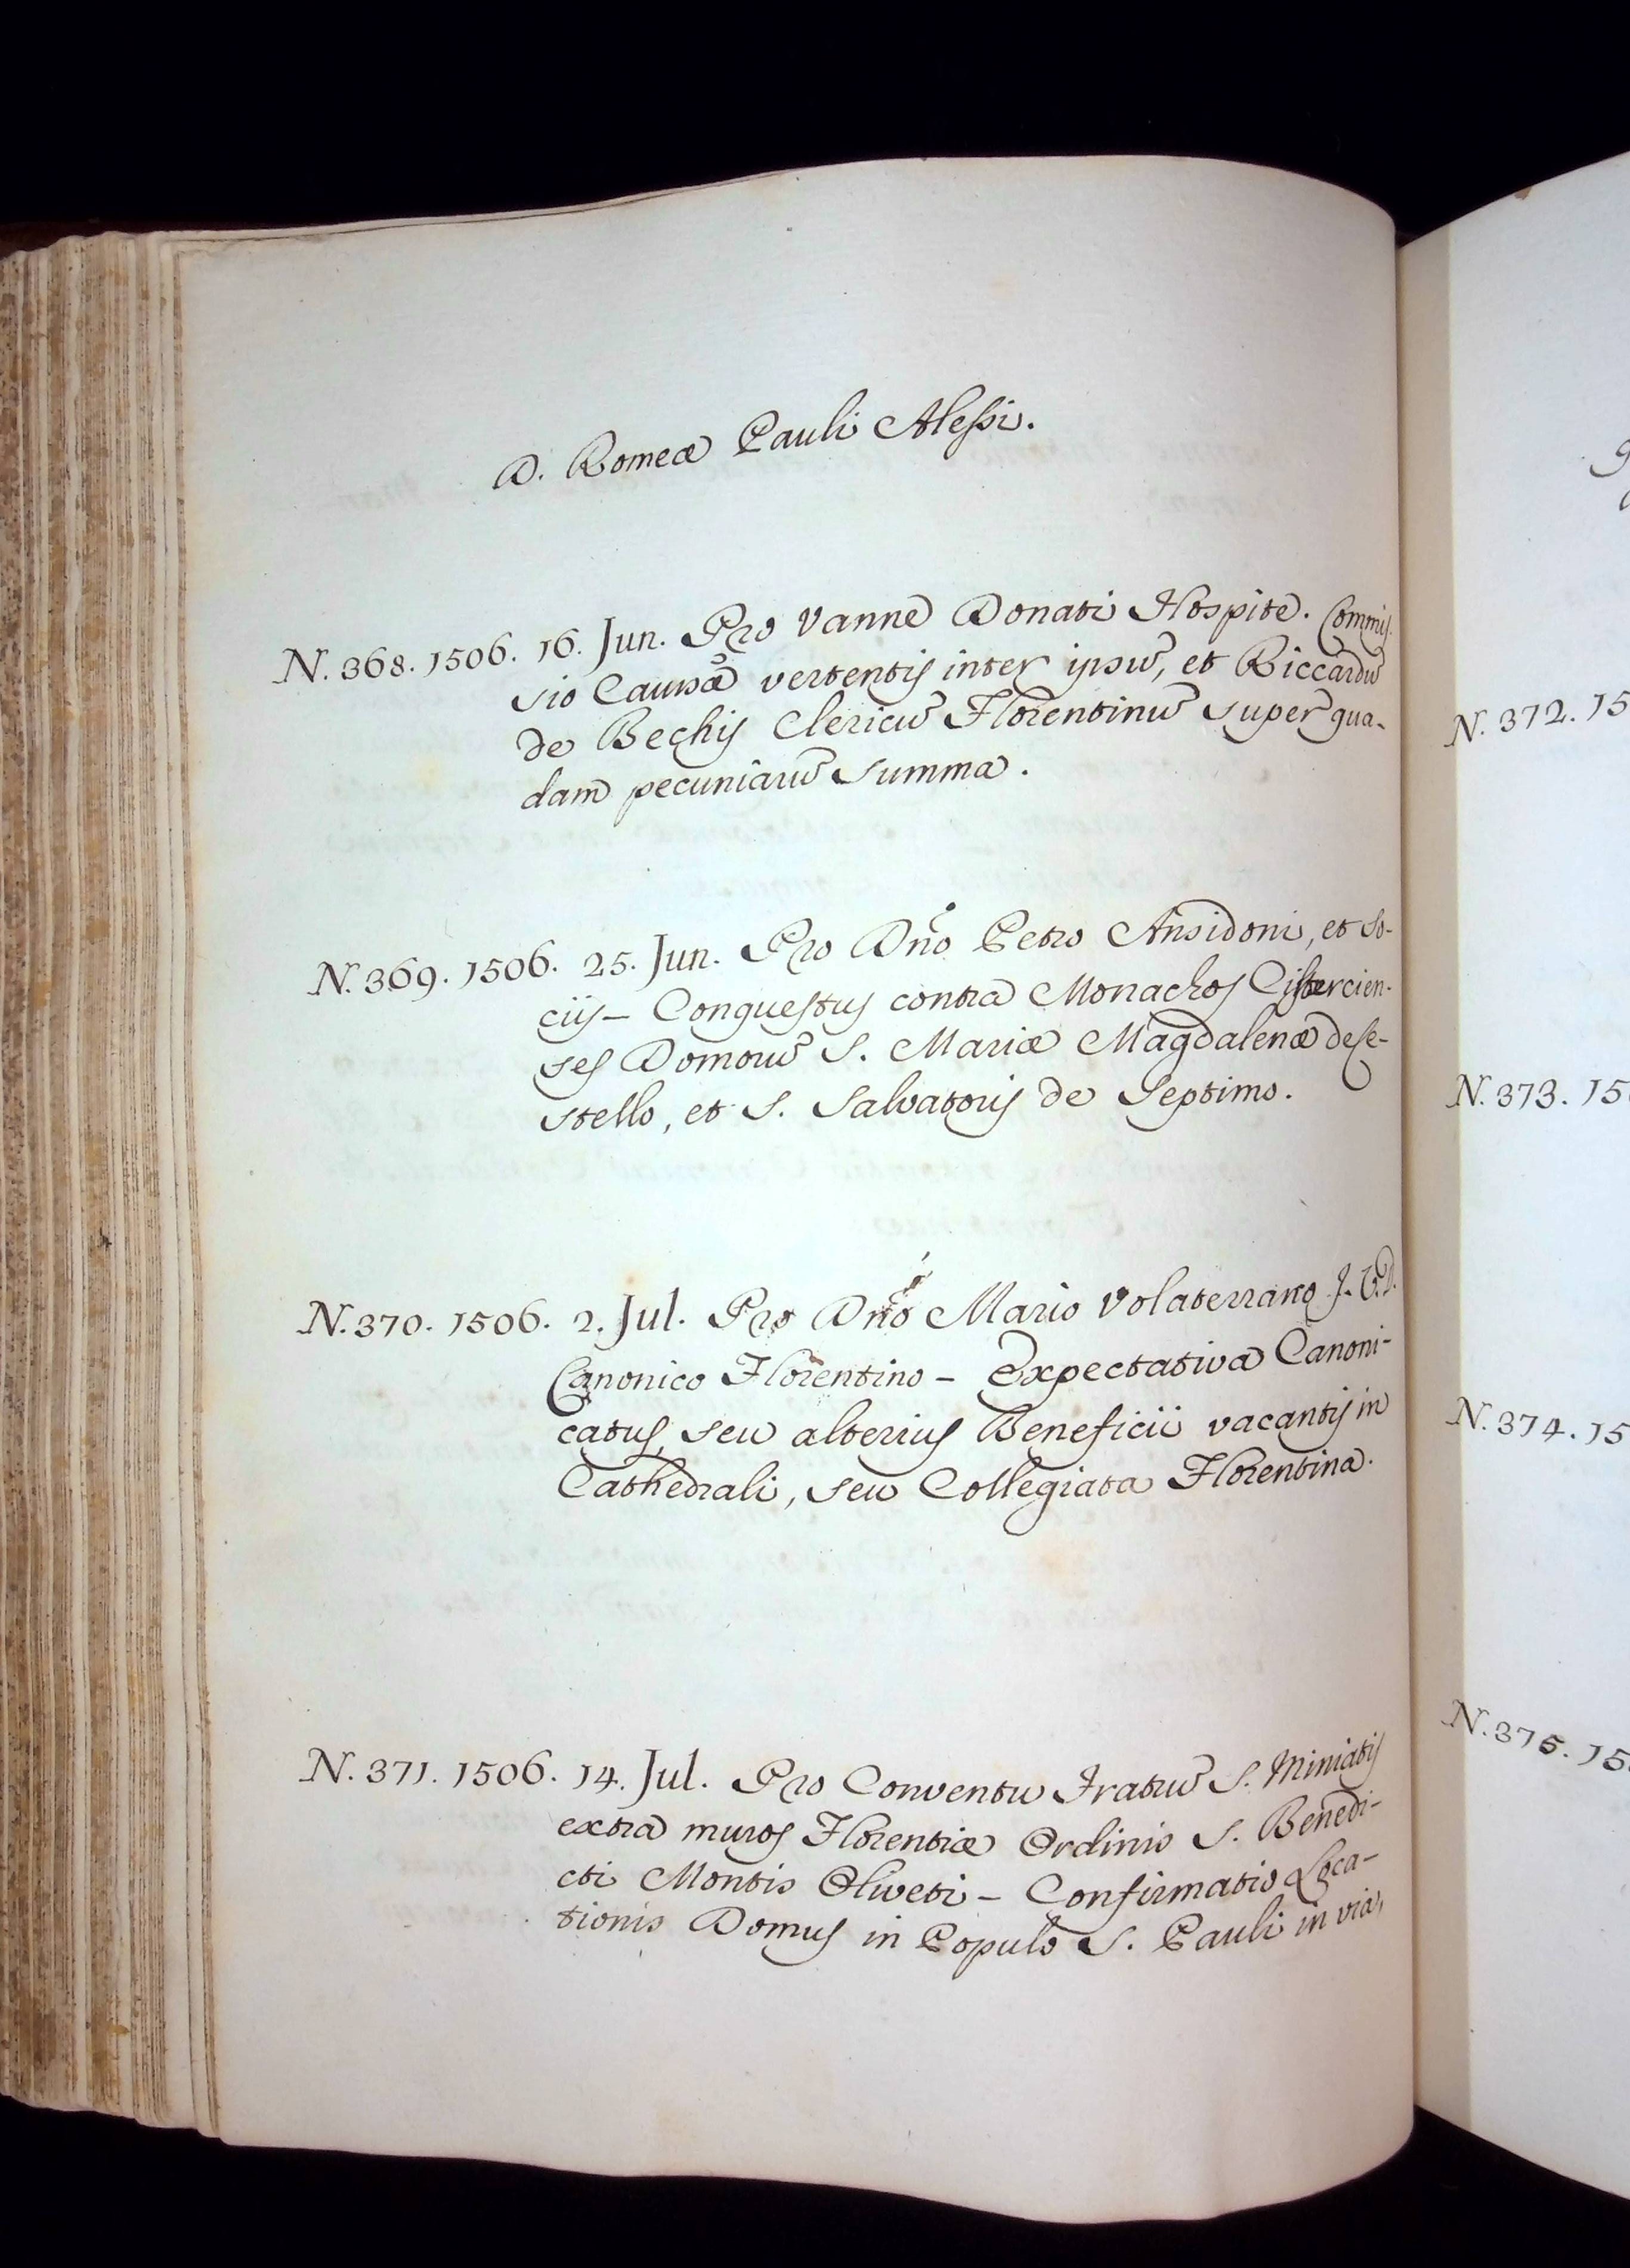 D. Romeæ Pauli Alessi.
N. 368. 1506. 16. Jun. Pro Vanne Donati Hospite. Commis-
sio Causæ vertentis inter ipsũ, et Riccardũ
de Bechis Clericũ Florentinũ super qua-
dam pecuniarũ summa.
N. 369. 1506. 25. Jun. Pro Dño Petro Ansidoni, et So-
ciis – Conquestus contra Monachos Cistercien-
ses Domorũ S. Mariæ Magdalenæ de Ce-
stello, et S. Salvatoris de Septimo.
N. 370. 1506. 2. Jul. Pro Dño Mario Volaterrano J. V. D.
Canonico Florentino – Expectativa Canoni-
catus, seu alterius Beneficii vacantis in
Cathedrali, seu Collegiata Florentina.
N. 371. 1506. 14. Jul. Pro Conventu Fratrũ S. Miniatis
extra muros Florentiæ Ordinis S. Benedi-
cti Montis Oliveti – Confirmatio Loca-
tionis Domus in Populo S. Pauli in via,
N. 372. 15
N. 373. 15
N. 374. 15
N. 375. 15